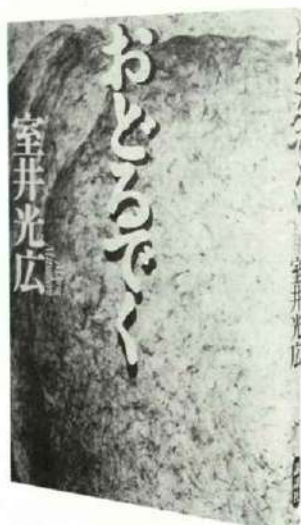 おどるでく
室井光広
室井光広